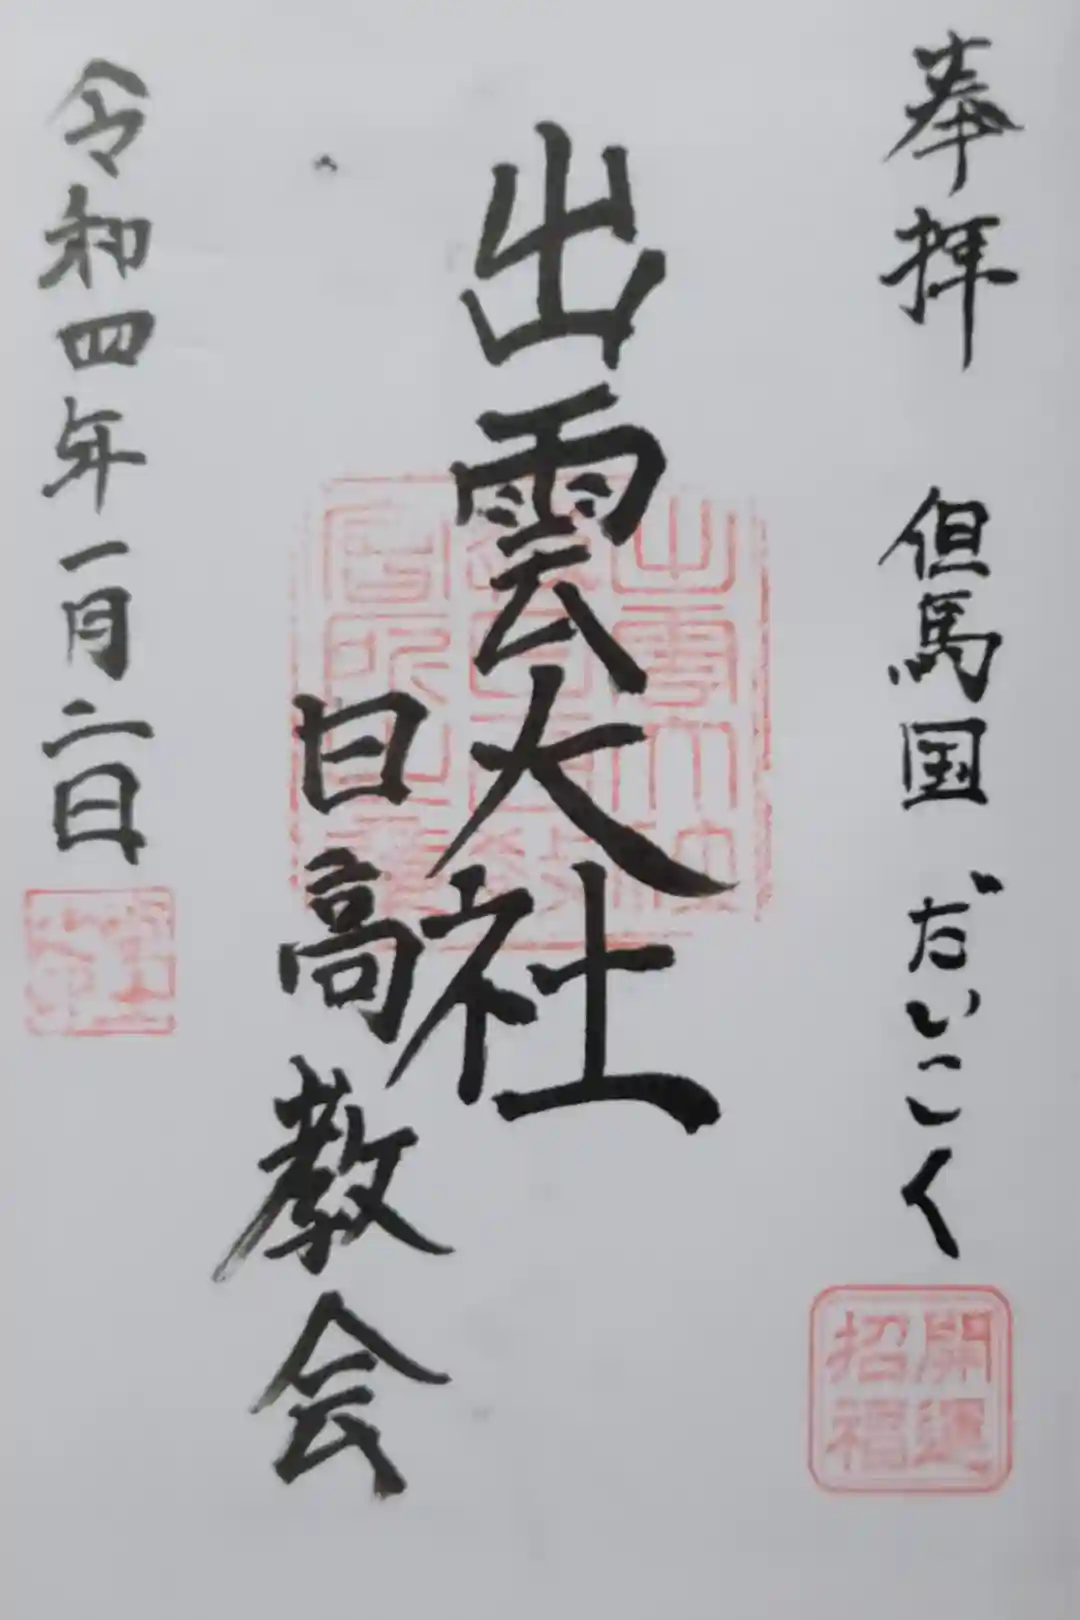 奉拝 但馬国 だいこく
開運
招福
出雲大社
日高教会
令和四年一月二日